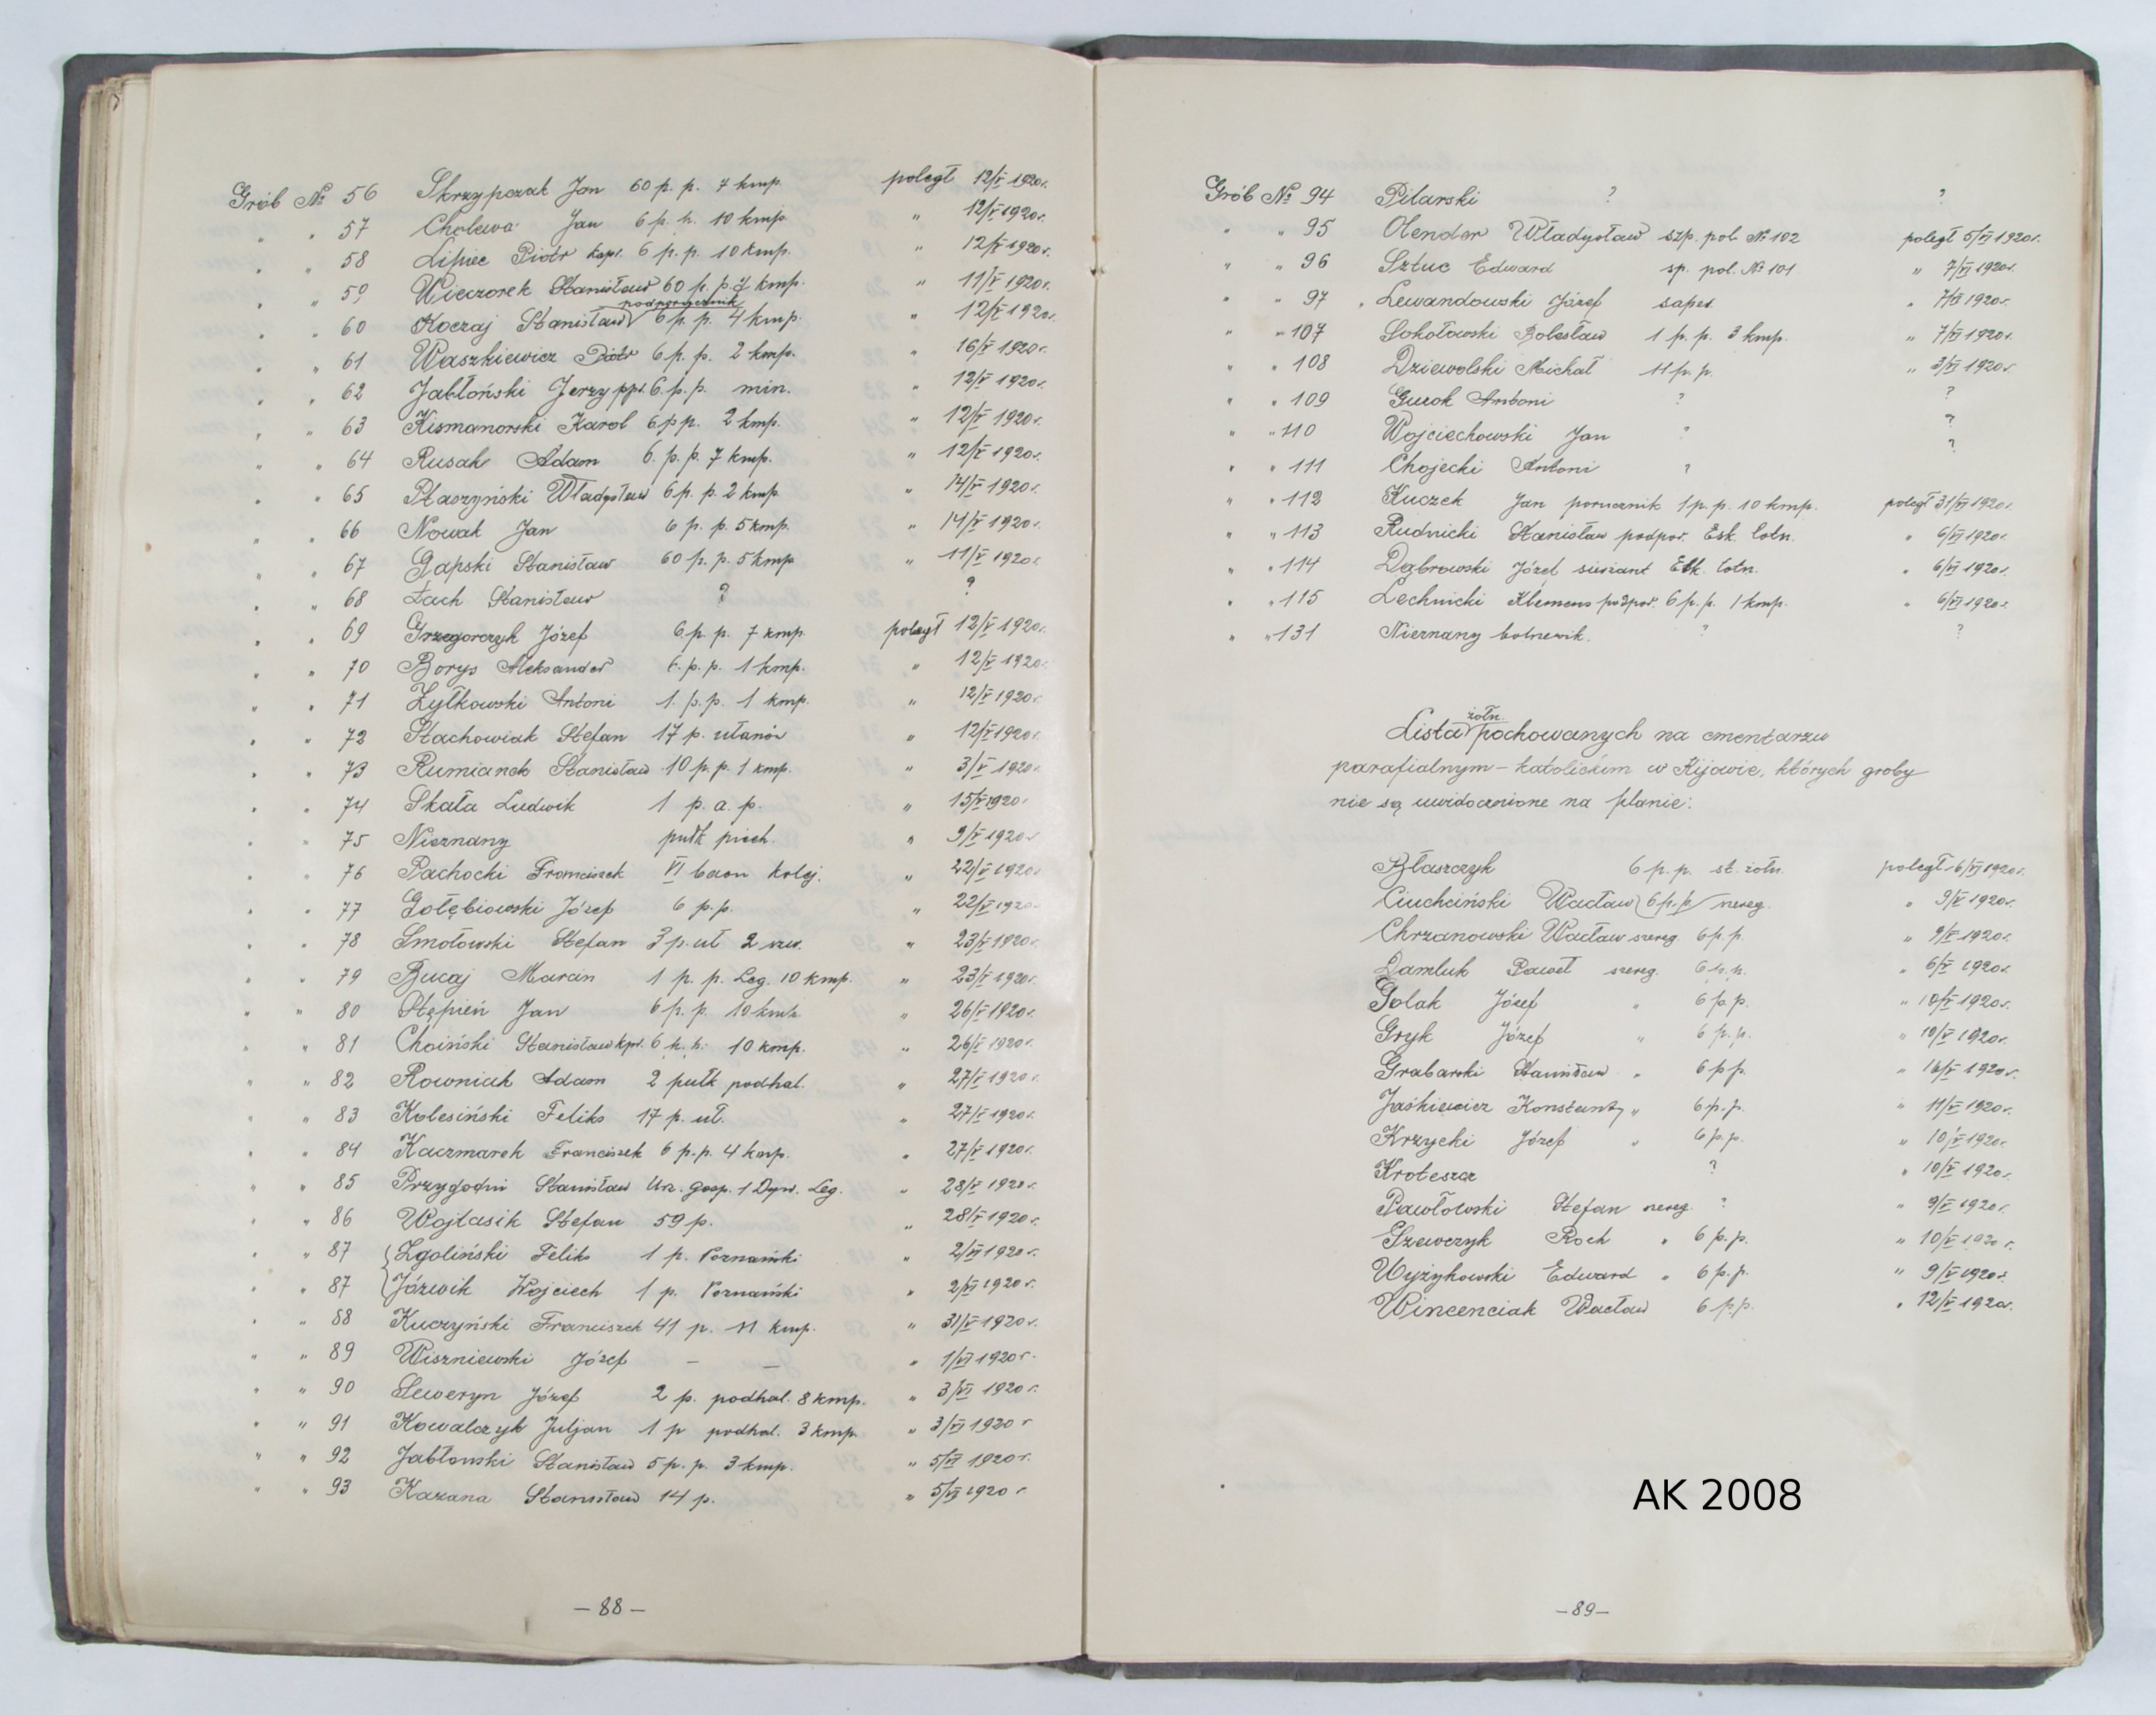 Grób № 56 Skrzypczak Jan 60 p. p. 7 kmp. poległ 12/V 1920r.
" " 57 Cholewa Jan 6 p. p. 10 kmp. " 12/V 1920r.
" " 58 Lipiec Piotr kapr. 6 p. p. 10 kmp. " 12/V 1920r.
" " 59 Wieczorek Stanisław 60 p. p. 7 kmp. " 11/V 1920r.
podporucznik
" " 60 Koczaj Stanisław 6 p. p. 4 kmp. " 12/V 1920r.
" " 61 Waszkiewicz Piotr 6 p. p. 2 kmp. " 16/V 1920r.
" " 62 Jabłoński Jerzy ppr. 6 p. p. min. " 12/V 1920r.
" " 63 Kismanorski Karol 6 p p. 2 kmp. " 12/V 1920r.
" " 64 Rusak Adam 6. p. p. 7 kmp. " 12/V 1920r.
" " 65 Płaszyński Władysław 6 p. p. 2 kmp. " 14/V 1920r.
" " 66 Nowak Jan 6 p. p. 5 kmp. " 14/V 1920r.
" " 67 Gapski Stanisław 60 p. p. 5 kmp " 11/V 1920r.
" " 68 Łach Stanisław ? ?
" " 69 Grzegorczyk Józef 6 p. p. 7 kmp. poległ 12/V 1920r.
" " 70 Borys Aleksander 6. p. p. 1 kmp. " 12/V 1920r.
" " 71 Żyłkowski Antoni 1. p. p. 1 kmp. " 12/V 1920r.
" " 72 Stachowiak Stefan 17 p. ułanów " 12/V 1920r.
" " 73 Rumianek Stanisław 10 p. p. 1 kmp. " 3/V 1920r.
" " 74 Skała Ludwik 1 p. a. p. " 15/V 1920r
" " 75 Nieznany pułk piech. " 9/V 1920r
" " 76 Pachocki Franciszek VI baon kolej. " 22/V 1920r
" " 77 Gołębiowski Józef 6 p. p. " 22/V 1920r
" " 78 Smołowski Stefan 3 p. uł 2 szw. " 23/V 1920r.
" " 79 Bucaj Marcin 1 p. p. Leg. 10 kmp. " 23/V 1920r.
" " 80 Stępień Jan 6 p. p. 10 kmp. " 26/V 1920r.
" " 81 Choiński Stanisław kpr. 6 p. p. 10 kmp. " 26/V 1920r.
" " 82 Rowniak Adam 2 pułk podhal. " 27/V 1920r.
" " 83 Kolesiński Feliks 17 p. uł. " 27/V 1920r.
" " 84 Kaczmarek Franciszek 6 p. p. 4 kmp. " 27/V 1920r.
" " 85 Stanisław Urz. gosp. 1 Dyw. Leg. " 28/V 1920r.
" " 86 Wojtasik Stefan 59 p. " 28/V 1920r.
" " 87 { Zgoliński Feliks 1 p. Poznański " 2/VI 1920r.
" " 87 { Józwik Wojciech 1 p. Poznański " 2/VI 1920r.
" " 88 Kuczyński Franciszek 41 p. 11 kmp. " 31/V 1920r.
" " 89 Wiszniewski Józef – – " 1/VI 1920r.
" " 90 Seweryn Józef 2 p. podhal. 8 kmp. " 3/VI 1920r.
" " 91 Kowalczyk Juljan 1 p podhal. 3 kmp. " 3/VI 1920r
" " 92 Jabłonski Stanisław 5 p. p. 3 kmp. " 5/VI 1920r.
" " 93 Kazana Stanisław 14 p. " 5/VI 1920r.
– 88 –
Grób № 94 Pilarski ? ?
" " 95 Olender Władysław szp. pol. № 102 poległ 5/VI 1920r.
" " 96 Sztuc Edward sp. pol. № 101 " 7/VI 1920r.
" " 97 Lewandowski Józef saper. " 7/VI 1920r.
" " 107 Sokołowski Bolesław 1 p. p. 3 kmp. " 7/VI 1920r.
" " 108 Dziewolski Michał 11 p. p. " 3/VI 1920r
" " 109 Gurok Antoni ? ?
" " 110 Wojciechowski Jan ? ?
" " 111 Chojecki Antoni ? ?
" " 112 Kuczek Jan porucznik 1 p. p. 10 kmp. poległ 31/VI 1920r.
" " 113 Rudnicki Stanisław podpor. Esk. lotn. " 6/VI 1920r.
" " 114 Dąbrowski Józef sierżant Esk. lotn. " 6/VI 1920r.
" " 115 Lechnicki Klemens podpor. 6 p. p. 1 kmp. " 6/VI 1920r.
" " 131 Nieznany bolszewik. ? ?
żołn.
Lista pochowanych na cmentarzu
parafialnym – katolickim w Kijowie, których groby
nie są uwidocznione na planie:
Błaszczyk 6 p. p. st. żołn. poległ 6/VI 1920r.
Ciuchciński Wacław 6 p. p. szereg. " 9/V 1920r.
Chrzanowski Wacław szereg. 6 p. p. " 9/V 1920r.
Damluk Paweł szereg. 6 p. p. " 6/V 1920r.
Golak Józef " 6 p. p. " 10/V 1920r.
Gryk Józef " 6 p. p. " 10/V 1920r.
Grabarski Stanisław " 6 p p. " 16/V 1920r.
Jaśkiewicz Konstanty " 6 p. p. " 11/V 1920r.
Krzycki Józef " 6 p. p. " 10/V 1920r.
Kroteszcz ? " 10/V 1920r.
Pawłowski Stefan szereg. ? " 9/V 1920r.
Szewczyk Roch " 6 p. p. " 10/V 1920r.
Wyżykowski Edward " 6 p. p. " 9/V 1920r.
Wincenciak Wacław 6 p. p. " 12/V 1920r.
AK 2008
– 89 –